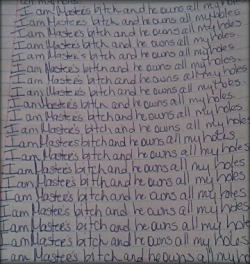 my holes
I am Master's bitch and he owns all my holes.
I am Master's bitch and he owns all my holes.
I am Master's bitch and he owns all my holes.
I am Master's bitch and he owns all my holes.
I am Master's bitch and he owns all my holes.
I am Master's bitch and he owns all my holes.
I am Master's bitch and he owns all my holes.
I am Master's bitch and he owns all my holes.
I am Master's bitch and he owns all my holes.
I am Master's bitch and he owns all my holes
I am Master's bitch and he owns all my holes
I am Master's bitch and he owns all my holes
I am Master's bitch and he owns all my holes
I am Master's bitch and he owns all my holes
I am Master's bitch and he owns all my holes.
I am Master's bitch and he owns all my holes
I am Master's bitch and he owns all my holes
I am Master's bitch and he owns all my holes